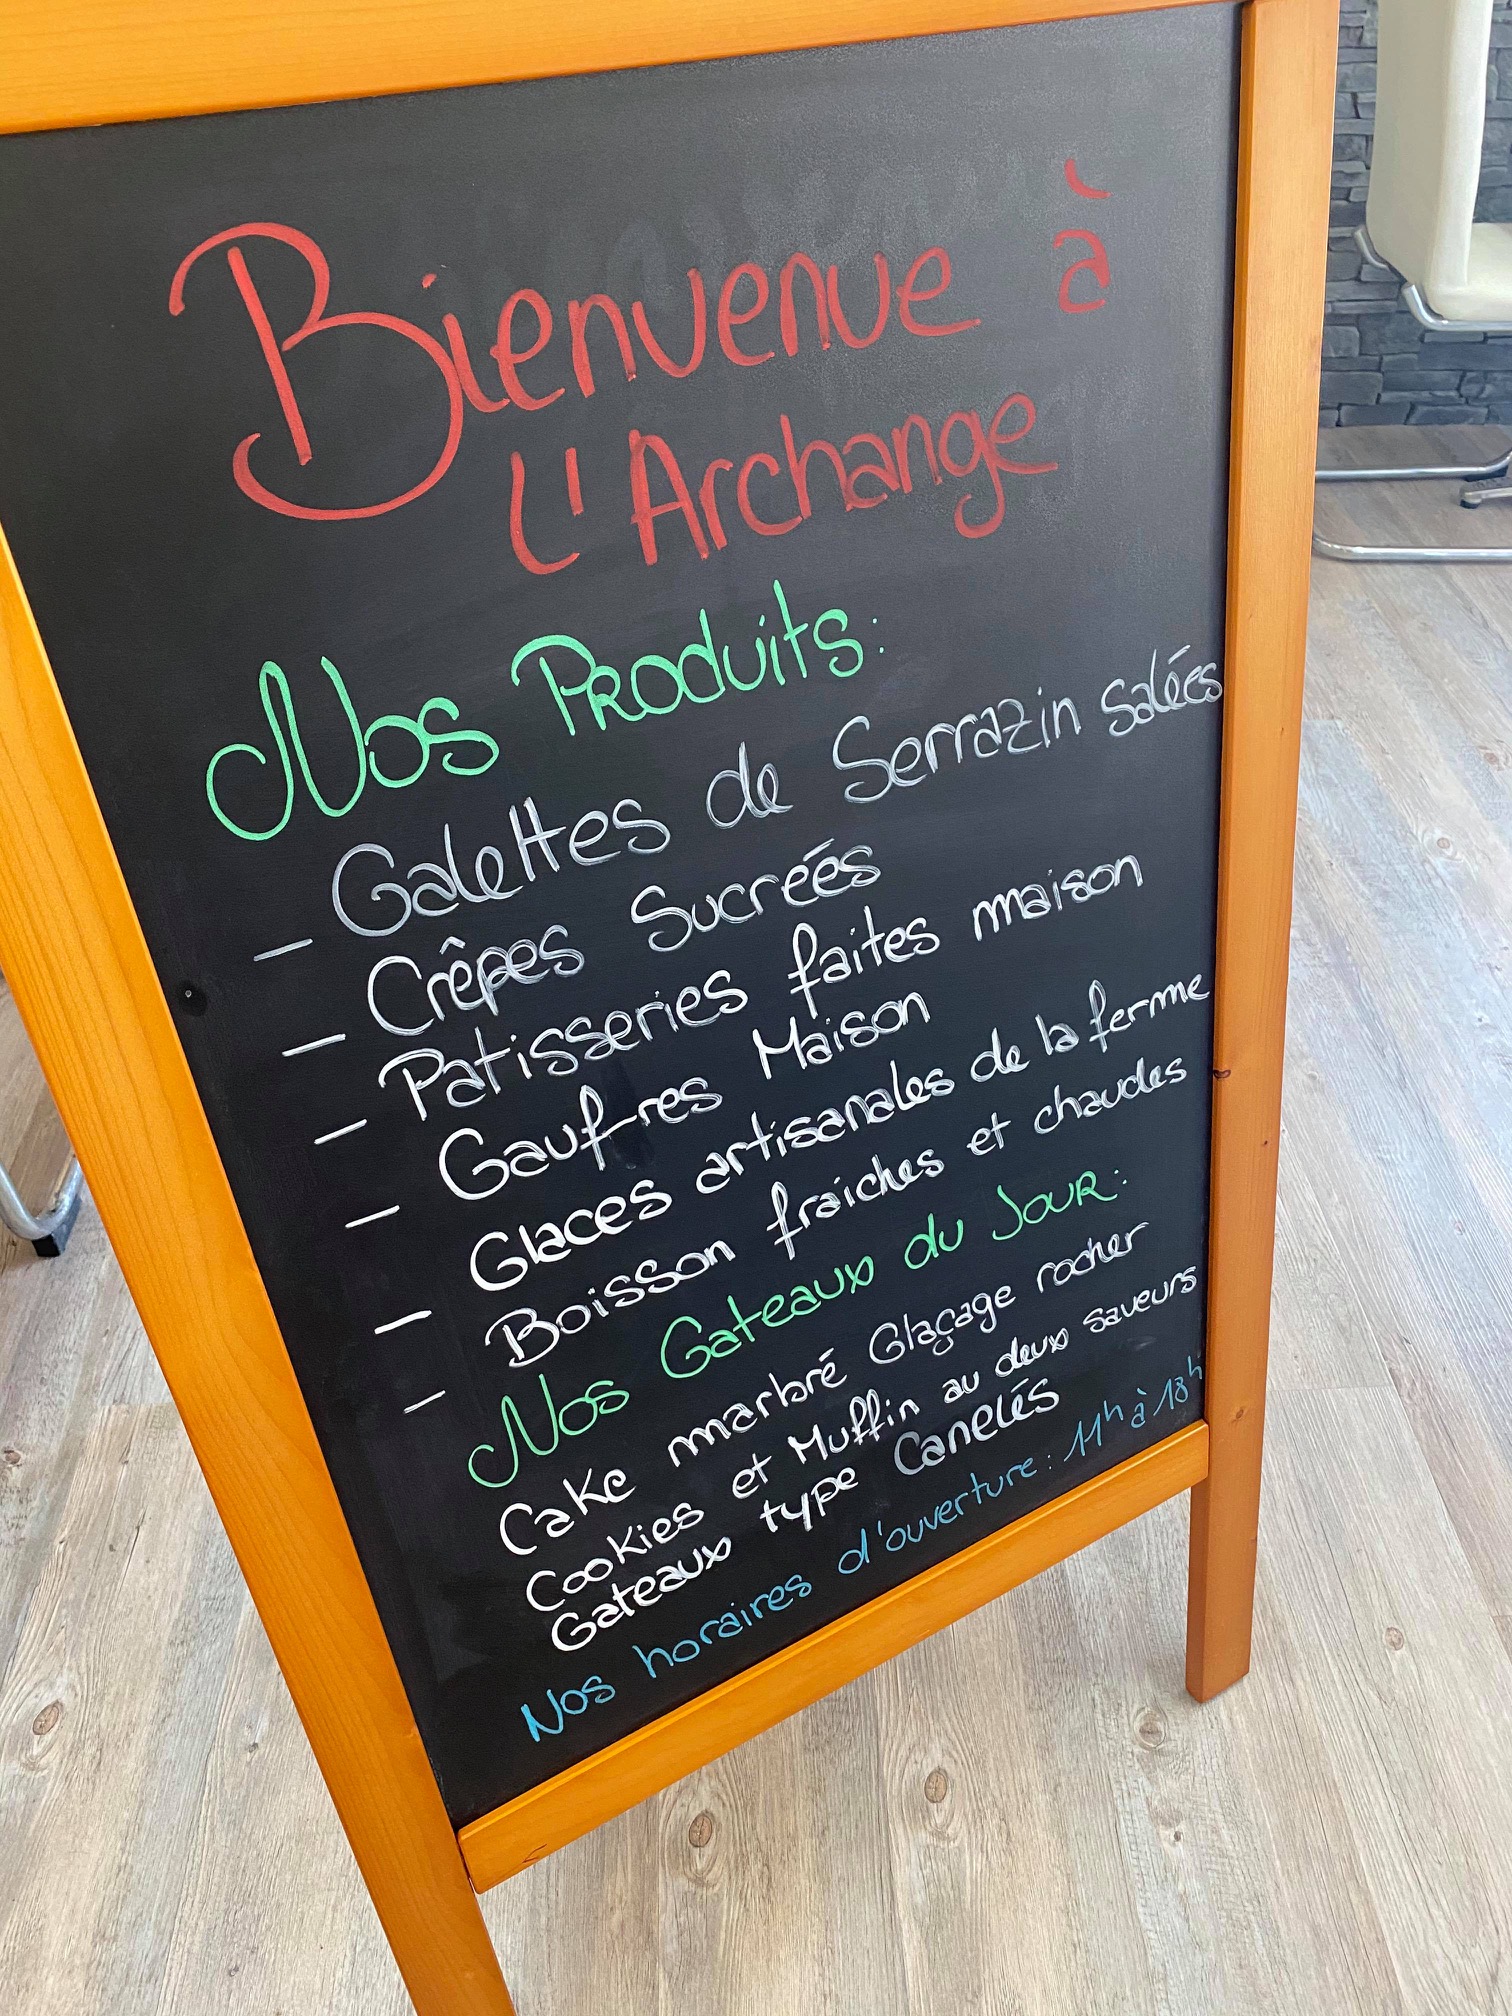 Bienvenue à
L'Archange
Nos Produits:
- Galettes de Serrazin salées
- Crêpes Sucréés
- Patisseries faites maison
- Gaufres Maison
- Glaces artisanales de la ferme
- Boisson fraiches et chaudes
Nos Gateaux du Jour:
Cake marbré Glaçage rocher
Cookies et Muffin au deux saveurs
Gateaux type Canelés
Nos horaires d'ouverture: 11h à 18h